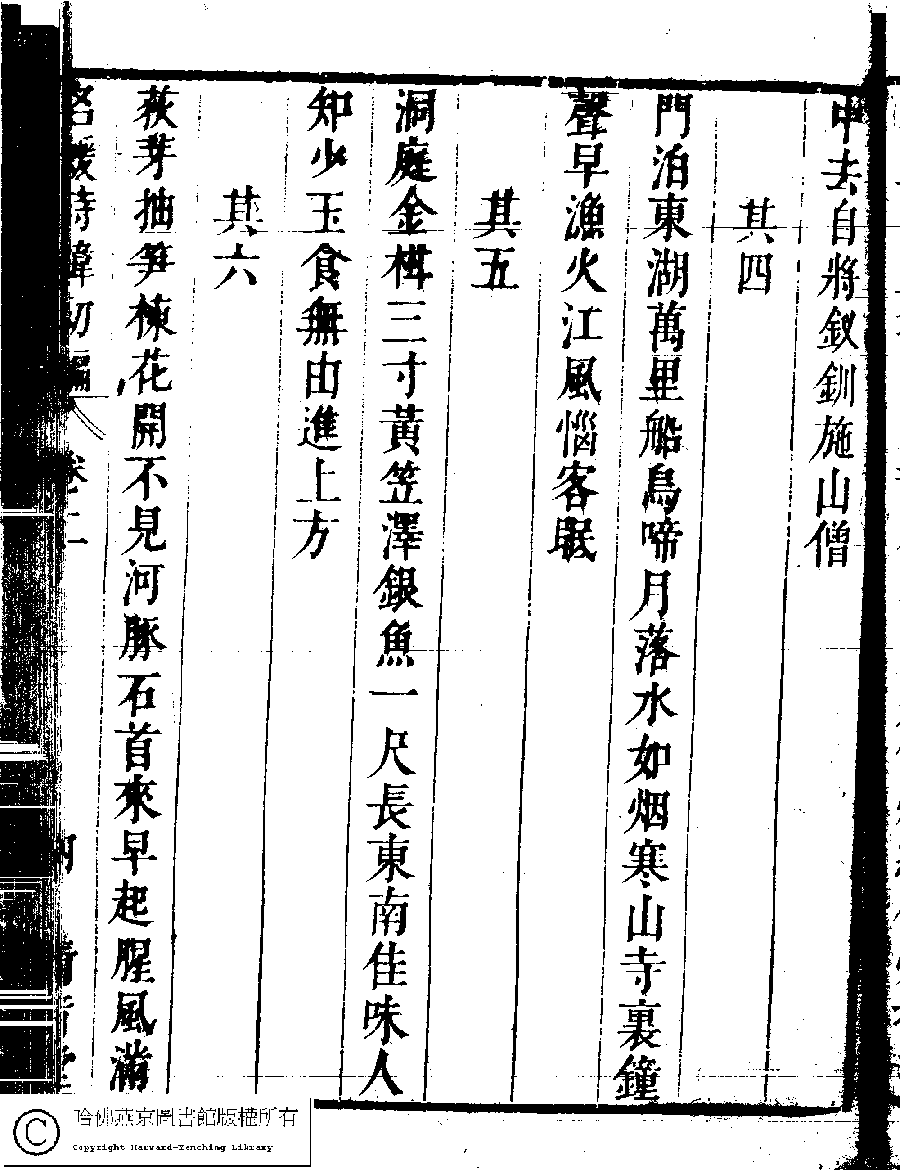 中去自將釵釧施山僧
其四
門泊東湖萬里船烏啼月落水如烟寒山寺裏鐘
聲早漁火江風惱客眠
其五
洞庭金柑三寸黃笠澤銀魚一尺長東南佳味人
知少玉食無由進上方
其六
荻芽抽笋楝花開不見河豚石首來早起腥風滿
名媛詩緯初編 卷二
哈佛燕京圖書館版權所有
Copyright Harvard-Yenching Library